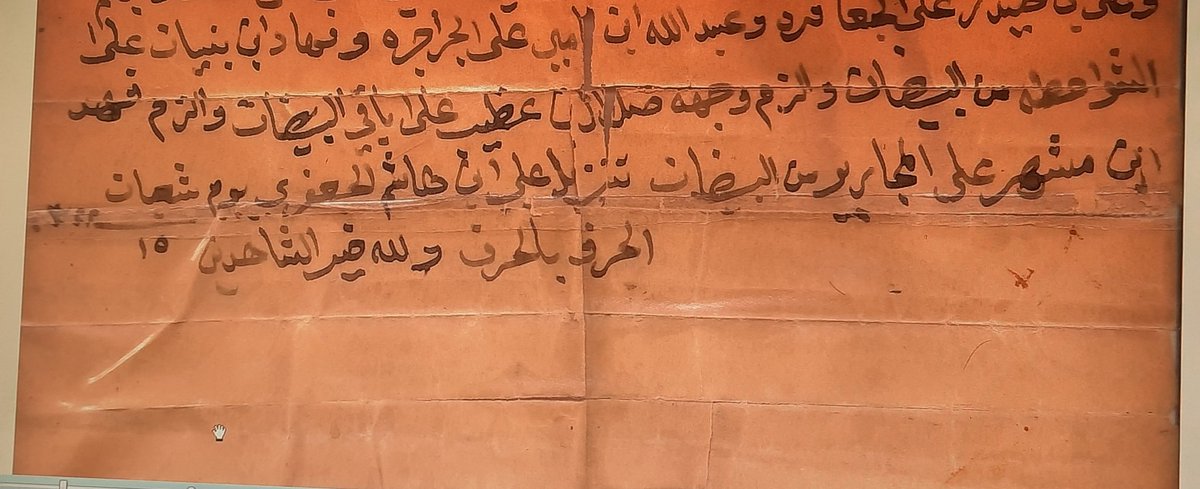 وعلي بن صيدر على الجعافره وعبد الله ابن امبي على الجراجره وفهاد ابن بنيان على
الشواحطه من البيضان والزم وجهه صلال ابن عطيب على باقي البيضان والزم فهد
ابن مشهر على المجاريد من البيضان تنزيلا علي ابن هاشم الجعفري يوم شعبان
الحرف بالحرف والله خير الشاهدين ١٥